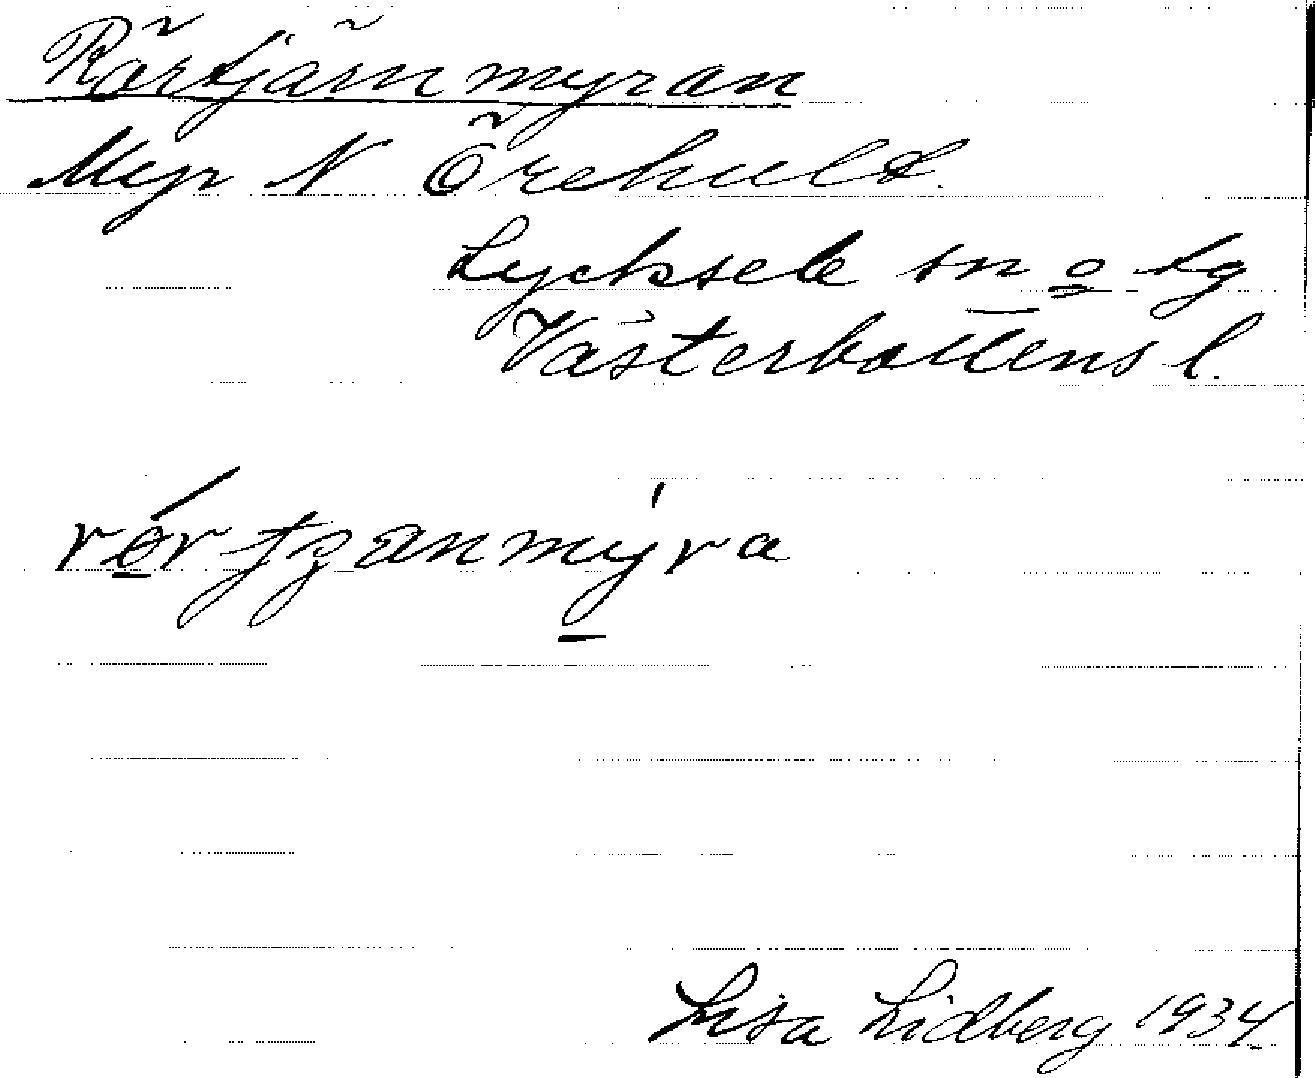 Rörtjärnmyran
Myr N Örehult.
Lycksele sn o tg
Västerbottens l.
rörtjanmyra
Lisa Lidberg 1934